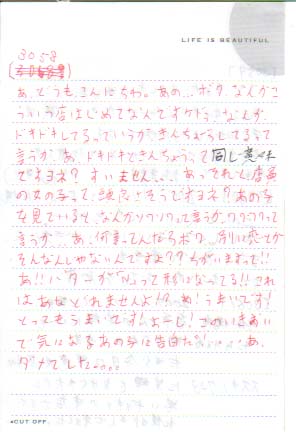 LIFE IS BEAUTIFUL
3058
あ、どうも、こんにちわ。あの…ボク、なんかこ
ういう店はじめてなんですケド、なんか
ドキドキしてるっていうか、きんちょーしてるって
言うか、あ、ドキドキときんちょうって同じ意味
ですヨネ？すいません… あってれと店員
の女の子って、誠良さそうですヨネ？あの子
を見ていると、なんかソワソワって言うか、ワクワクって
言うか… あ、何言ってんだろボク、別に恋とか
そんなんじゃないんですよ？？ちがいますって!!
あ!!バターが「い」って形になってる!!これ
はあなどれませんよ!?お!うまいです!
とってもうまいです!よーし!このいきおい
で気になるあの子に告白だ!! ……あ、
ダメでした……
CUT OFF